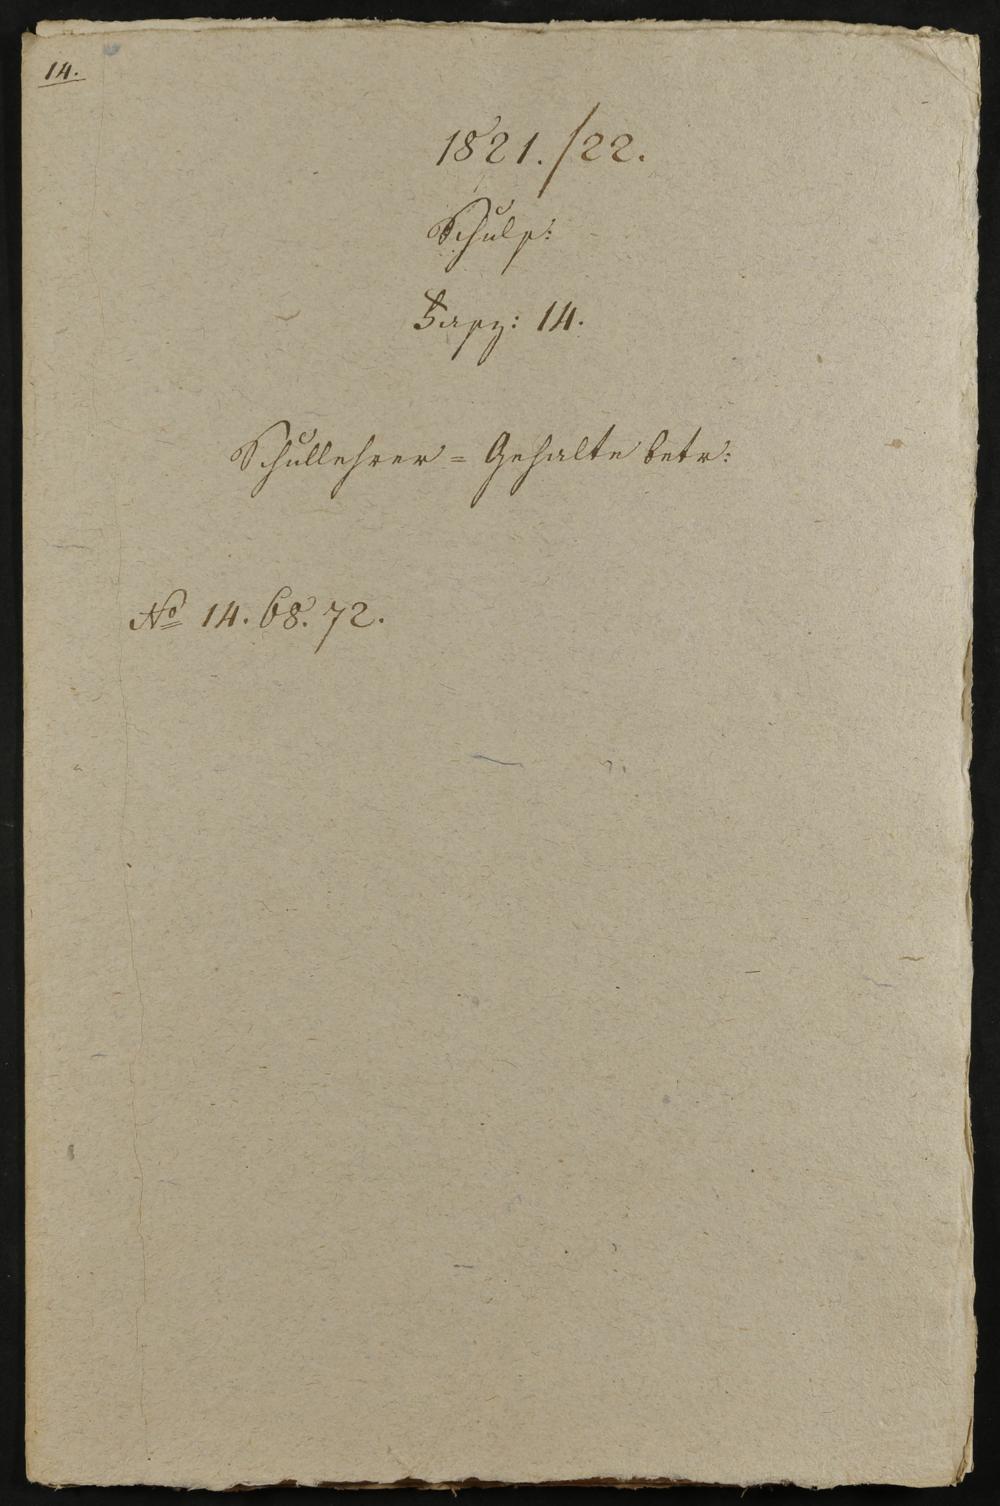 14.
1821./22.
Schulf:
Fasz: 14.
Schullehrer = Gehalte betr:
No 14. 68. 72.